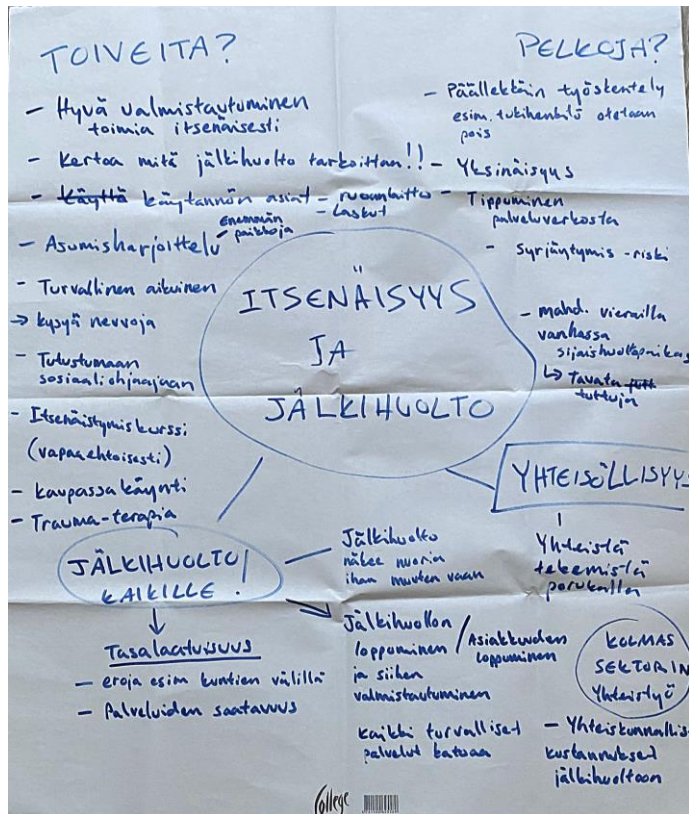 TOIVEITA?
- Hyvä valmistautuminen
toimia itsenäisesti
- Kertoa mitä jälkihuolto tarkoittaa!!
- käyttä käytännön asiat - ruuanlaitto
- Laskut
- Asumisharjoittelu enemmän
paikkoja
- Turvallinen aikuinen
→ kysyä neuvoja
- Tutustumaan
sosiaaliohjaajaan
- Itsenäistymiskurssi
(vapaaehtoisesti)
- kaupassa käynti
- Trauma-terapia
PELKOJA?
- Päällekkäin työskentely
esim. tukihenkilö otetaan
pois
- Yksinäisyys
- Tippuminen
palveluverkosta
- Syrjäytymis-riski
- mahd. vierailla
vanhassa
sijaishuoltopaikas
↳ Tavata tutt
tuttuja
ITSENÄISYYS
JA
JÄLKIHUOLTO
YHTEISÖLLISYYS
Yhteistä
tekemistä
porukalla
JÄLKIHUOLTO
KAIKILLE!
Tasalaatuisuus
- eroja esim kuntien välillä
- Palveluiden saatavuus
Jälkihuolto
näkee nuoria
ihan muuten vaan
Jälkihuollon
loppuminen / Asiakkuuden
loppuminen
ja siihen
valmistautuminen
kaikki turvalliset
palvelut katoaa
KOLMAS
SEKTORIN
Yhteistyö
- Yhteiskunnallis
kustannukset
jälkihuoltoon
College